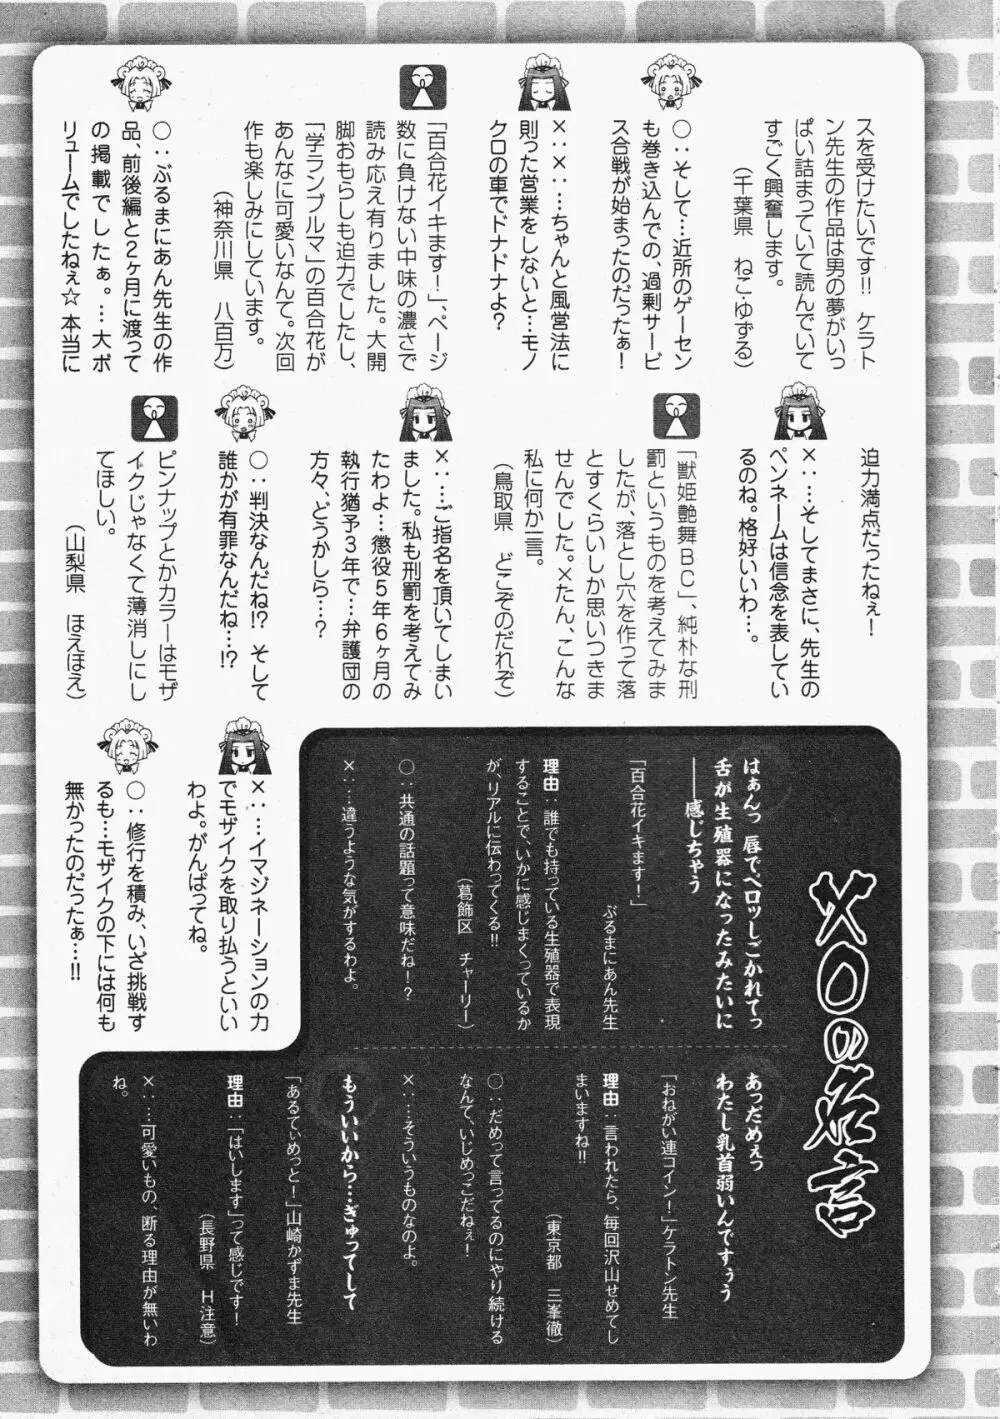 スを受けたいです!! ケラト
ン先生の作品は男の夢がいっ
ぱい詰まっていて読んでいて
すごく興奮します。
(千葉県 ねこ・ゆずる)
○‥そして…近所のゲーセン
も巻き込んでの、過剰サービ
ス合戦が始まったのだったぁ!
×‥×‥…ちゃんと風営法に
則った営業をしないと…モノ
クロの車でドナドナよ?
「百合花イキます!」、ページ
数に負けない中味の濃さで
読み応え有りました。大開
脚おもらしも迫力でしたし、
「学ランブルマ」の百合花が
あんなに可愛いなんて。次回
作も楽しみにしています。
(神奈川県 八百万)
○‥ぶるまにあん先生の作
品、前後編と2ヶ月に渡って
の掲載でしたぁ。…大ボ
リュームでしたねぇ☆本当に
迫力満点だったねぇ!
×‥…そしてまさに、先生の
ペンネームは信念を表してい
るのね。格好いいわ…。
「獣姫艶舞BC」、純朴な刑
罰というものを考えてみま
したが、落とし穴を作って落
とすくらいしか思いつきま
せんでした。×たん、こんな
私に何か一言。
(鳥取県 どこぞのだれぞ)
×‥…ご指名を頂いてしまい
ました。私も刑罰を考えてみ
たわよ…懲役5年6ヶ月の
執行猶予3年で…弁護団の
方々、どうかしら…?
○‥判決なんだね!? そして
誰かが有罪なんだね…!?
ピンナップとかカラーはモザ
イクじゃなくて薄消しにし
てほしい。
(山梨県 ほえほえ)
×‥…イマジネーションの力
でモザイクを取り払うといい
わよ。がんばってね。
○‥修行を積み、いざ挑戦す
るも…モザイクの下には何も
無かったのだったぁ…!!
×○の名言
はぁんっ 唇でペロッしごかれてっ
舌が生殖器になったみたいに
――感じちゃう
「百合花イキます!」
ぶるまにあん先生
理由‥誰でも持っている生殖器で表現
することで、いかに感じまくっているか
が、リアルに伝わってくる!!
(葛飾区 チャーリー)
○‥共通の話題って意味だね!?
×‥…違うような気がするわよ。
あっだめぇっ
わたし乳首弱いんですぅう
「おねがい連コイン!」ケラトン先生
理由‥言われたら、毎回沢山せめてし
まいますね!!
(東京都 三峯徹)
○‥だめって言ってるのにやり続ける
なんて、いじめっこだねぇ!
×‥…そういうものなのよ。
もういいから…ぎゅってして
「あるてぃめっと!」山崎かずま先生
理由‥「はいします」って感じです!
(長野県 H注意)
×‥…可愛いもの、断る理由が無いわ
ね。